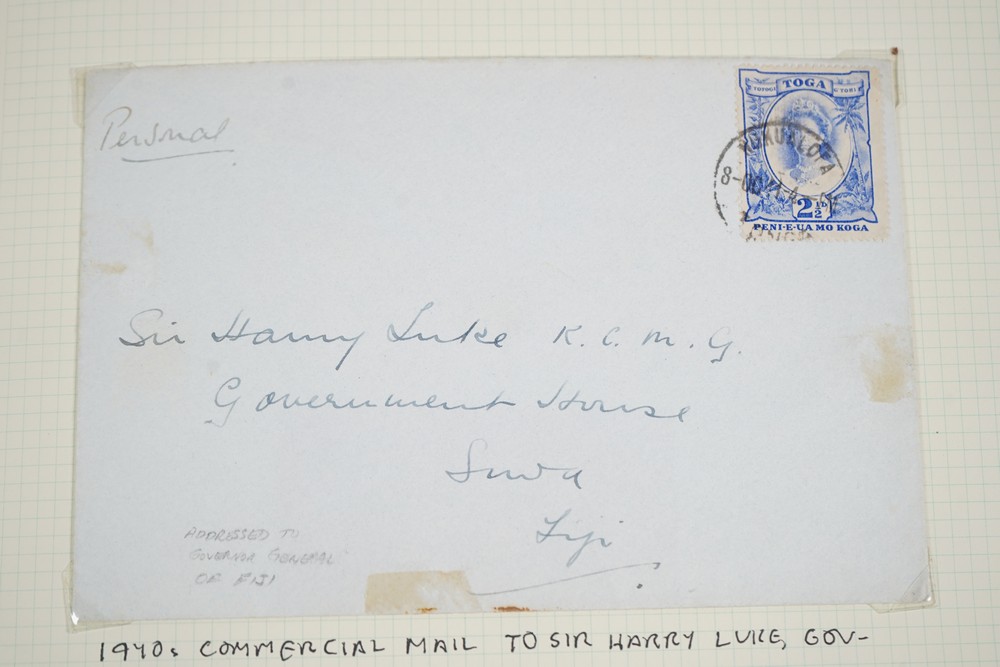 Personal
TOGA
2½D
PENI-E-UA MO KOGA
NUKUALOFA
Sir Harry Luke K.C.M.G.
Government House
Suva
Fiji
ADDRESSED TO
GOVERNOR GENERAL
OF FIJI
1940s COMMERCIAL MAIL TO SIR HARRY LUKE, GOV-